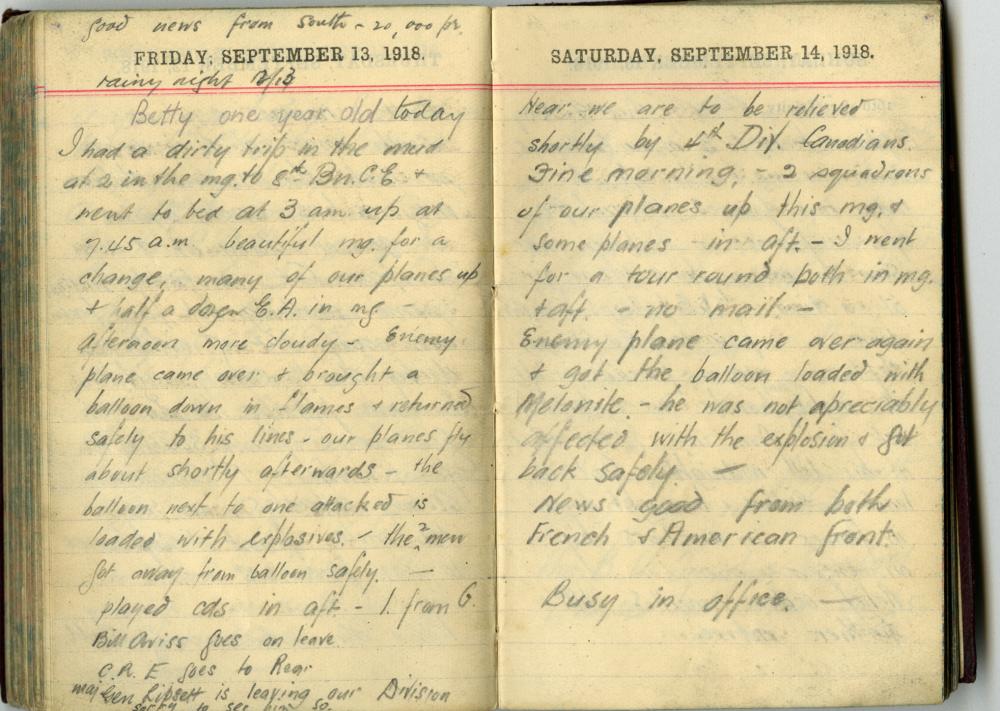 good news from South - 20,000 pr.
FRIDAY, SEPTEMBER 13, 1918.
rainy night 12/13
Betty one year old today
I had a dirty trip in the mud
at 2 in the mg. to 8th Bn. C.E +
went to bed at 3 am up at
7.45 a.m. beautiful mg. for a
change, many of our planes up
+ half a dozen E.A. in mg -
afternoon more cloudy - Enemy
plane came over + brought a
balloon down in flames + returned
safely to his lines - our planes fly
about shortly afterwards - the
balloon next to one attacked is
loaded with explosives. - the 2 men
got away from balloon safely. -
played cds in aft - 1. from G.
Bill Oviss goes on leave.
C.R.E goes to Rear
maj Gen Lipsett is leaving our Division
sorry to see him go.
SATURDAY, SEPTEMBER 14, 1918.
Hear we are to be relieved
shortly by 4th Div. Canadians.
Fine morning, - 2 squadrons
of our planes up this mg. +
some planes in aft. - I went
for a tour round both in mg.
+ aft. - no mail -
Enemy plane came over again
+ got the balloon loaded with
Melonite. - he was not apreciably
affected with the explosion + got
back safely. -
News good from both
French + American front.
Busy in office. -